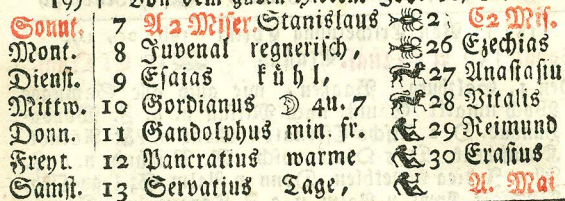 Sonnt. 7 A 2 Miser. Stanislaus 2 C2 Mis.
Mont. 8 Juvenal regnerisch, 26 Ezechias
Dienst. 9 Esaias kühl, 27 Anastasiu
Mittw. 10 Gordianus ☽ 4u. 7 28 Vitalis
Donn. 11 Gandolphus min. fr. 29 Reimund
Freyt. 12 Pancratius warme 30 Erastus
Samst. 13 Servatius Tage, A. Mai